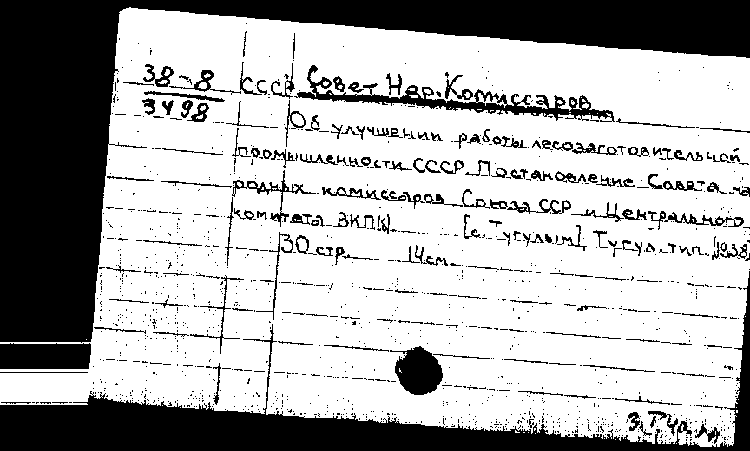 38-8
3498
СССР Совет Нар. Комиссаров
Об улучшении работы лесозаготовительной
промышленности СССР. Постановление Совета на
родных комиссаров Союза ССР и Центрального
комитета ВКП(б). [с. Тугулым], Тугул. тип. [1938]
30 стр. 14 см.